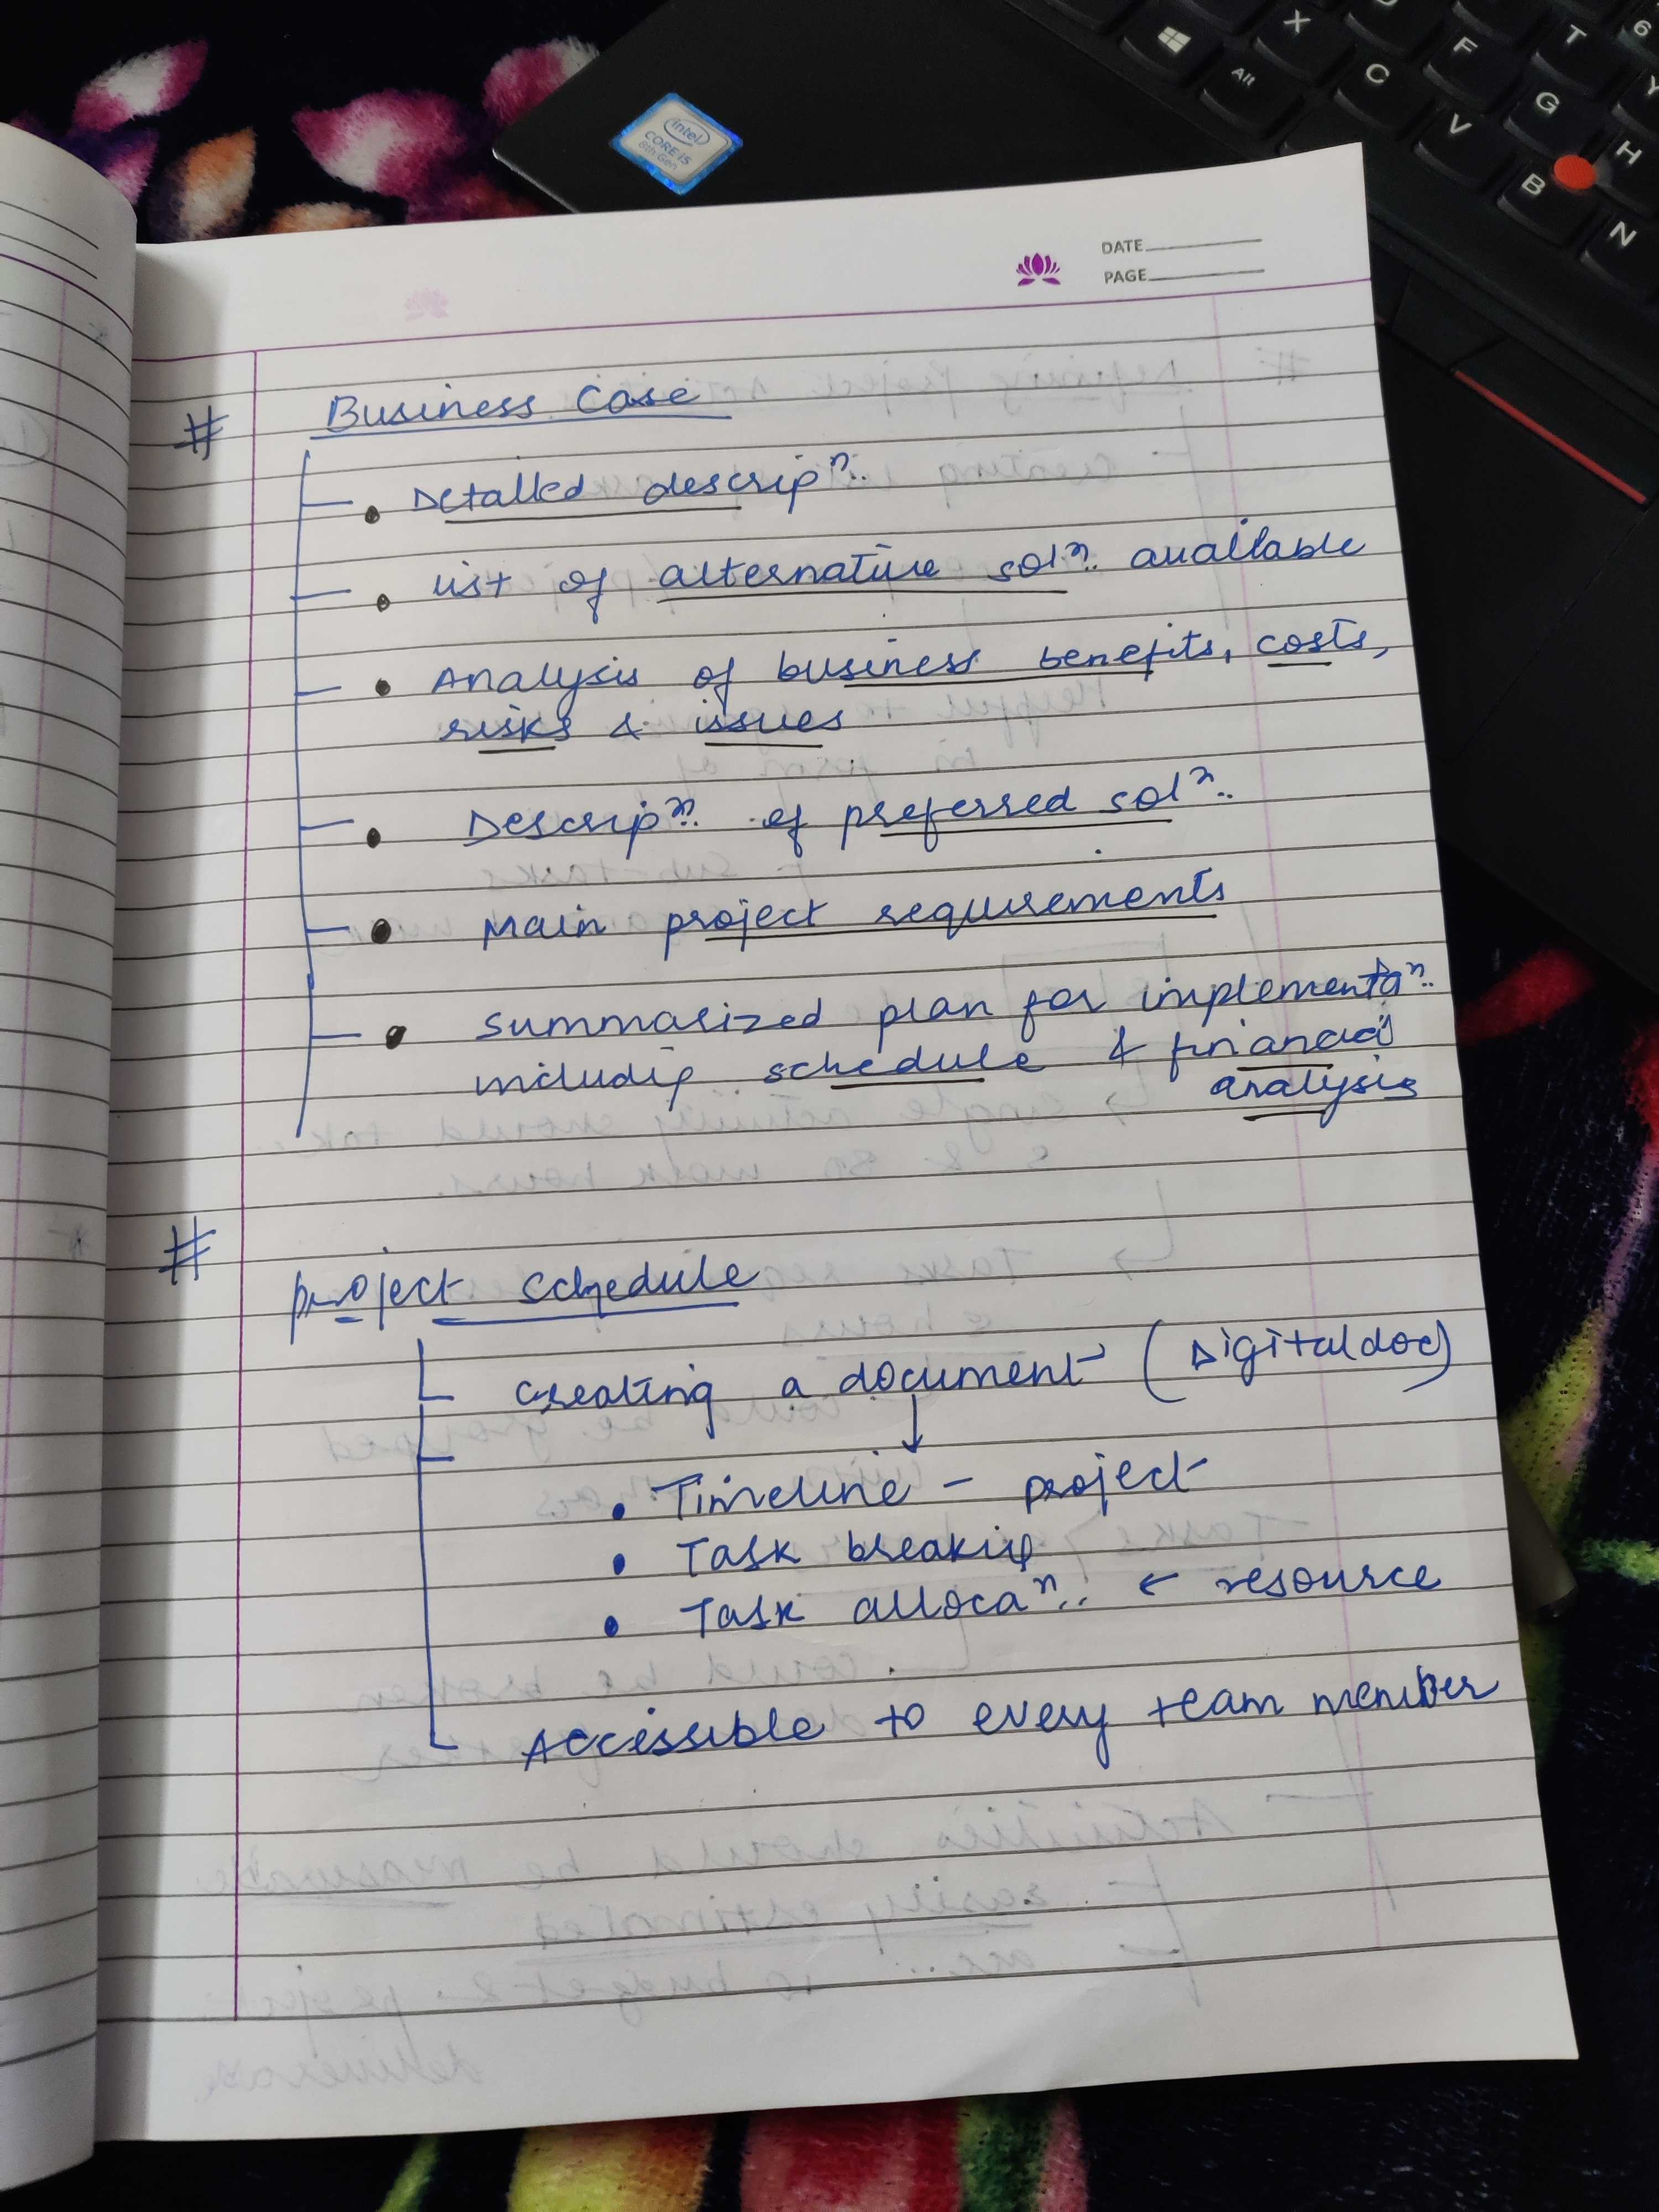 intel
CORE i5
8th Gen
Alt
X
C
V
B
N
D
F
G
H
T
Y
6
DATE
PAGE
# Business Case
• Detailed descripⁿ..
• List of alternative solⁿ. available
• Analysis of business benefits, costs,
risks & issues
• Descripⁿ. of preferred solⁿ..
• Main project requirements
• Summarized plan for implementaⁿ..
includig schedule & financial
analysis
# project schedule
creating a document (Digital doc)
↓
• Timeline - project
• Task breakig
• Task allocaⁿ.. ← resource
Accessible to every team member